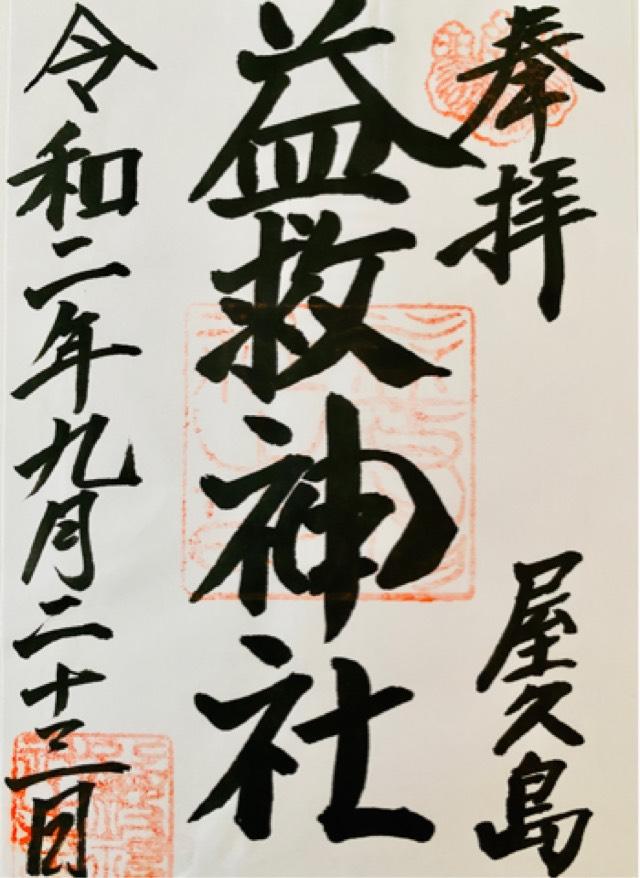 奉拝
屋久島
益救神社
令和二年九月二十三日